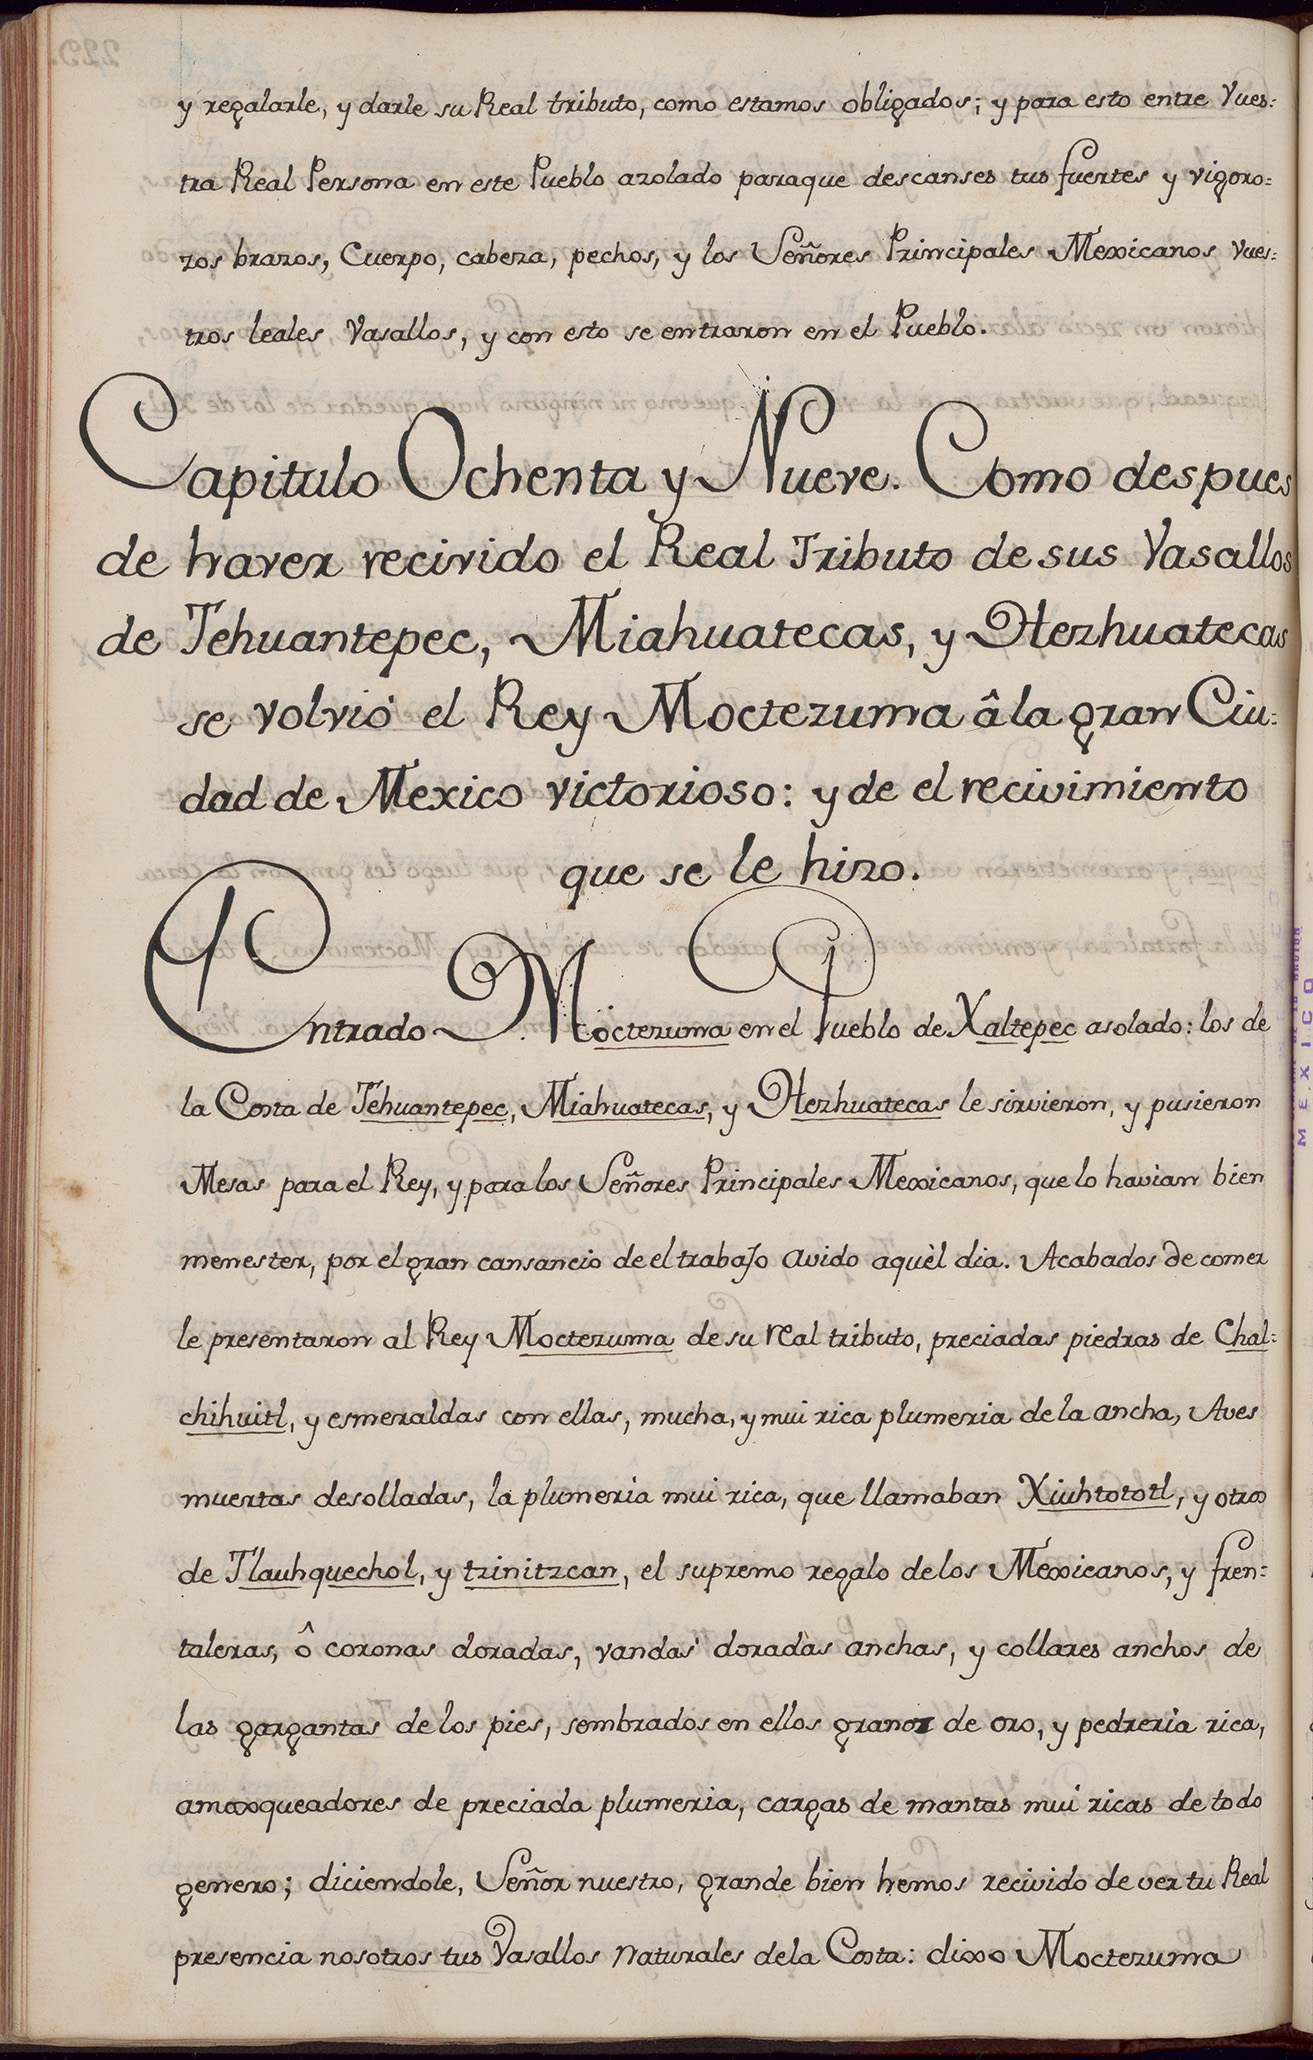 y regalarle, y darle su Real tributo, como estamos obligados; y para esto entre Vues:
tra Real Persona en este Pueblo azolado paraque descanses tus fuertes y vigoro:
zos brazos, Cuerpo, cabeza, pechos, y los Señores Principales Mexicanos vues:
tros leales Vasallos, y con esto se entraron en el Pueblo.
Capitulo Ochenta y Nueve. Como despues
de haver recivido el Real Tributo de sus Vasallos
de Tehuantepec, Miahuatecas, y Hezhuatecas
se volvió el Rey Moctezuma â la gran Ciu:
dad de Mexico victorioso: y de el recivimiento
que se le hizo.
Entrado Moctezuma en el Pueblo de Xaltepec asolado: los de
la Costa de Tehuantepec, Miahuatecas, y Hezhuatecas le sirvieron, y pusieron
Mesas para el Rey, y para los Señores Principales Mexicanos, que lo havian bien
menester, por el gran cansancio de el trabajo avido aquèl dia. Acabados de comer
le presentaron al Rey Moctezuma de su real tributo, preciadas piedras de Chal:
chihuitl, y esmeraldas con ellas, mucha, y mui rica plumeria de la ancha, Aves
muertas desolladas, la plumeria mui rica, que llamaban Xiuhtototl, y otros
de Tlauhquechol, y tzinitzcan, el supremo regalo de los Mexicanos, y fren:
taleras, ô coronas doradas, vandas doradas anchas, y collares anchos de
las gargantas de los pies, sembrados en ellos granos de oro, y pedreria rica,
amoxqueadores de preciada plumeria, cargas de mantas mui ricas de todo
genero; diciendole, Señor nuestro, grande bien hemos recivido de ver tu Real
presencia nosotros tus Vasallos Naturales dela Costa: dixo Moctezuma
MEXICO